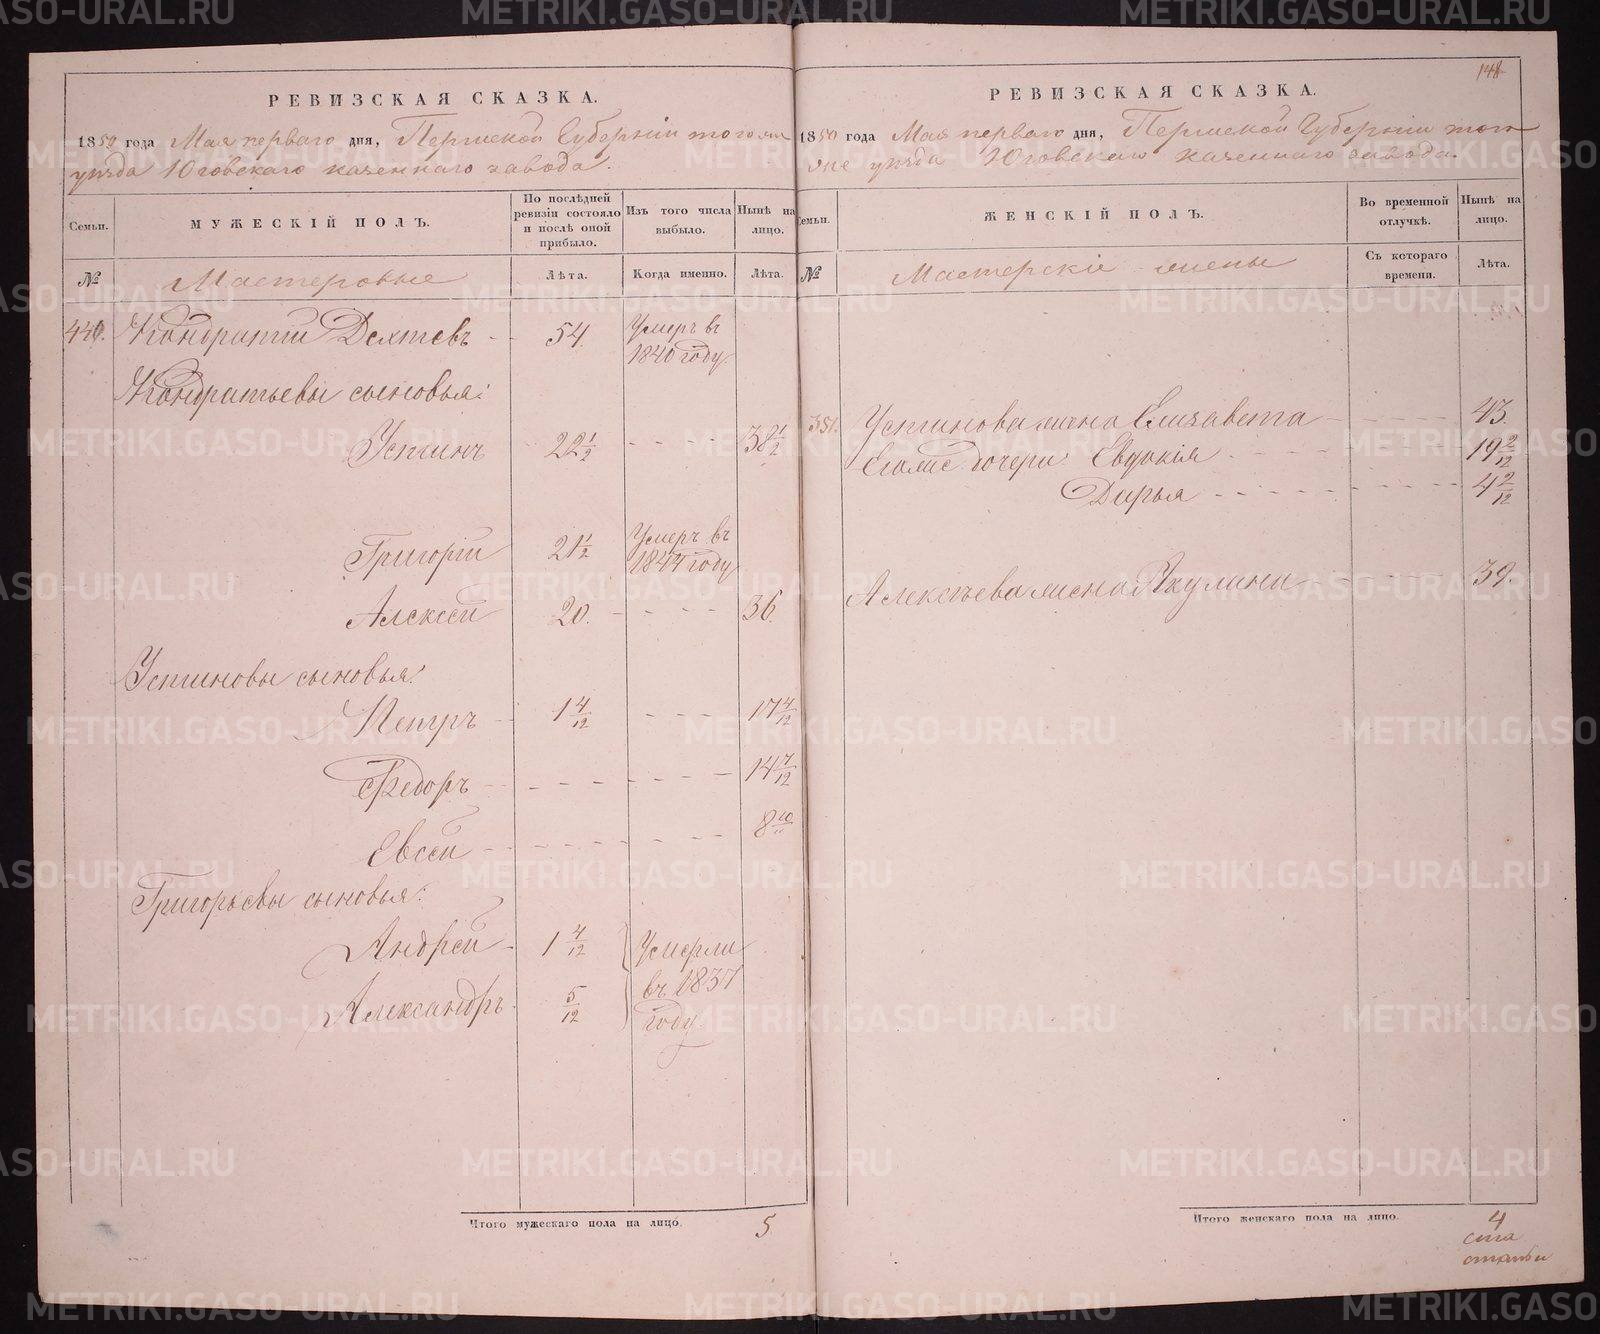 РЕВИЗСКАЯ СКАЗКА.
1850 года Мая перваго дня, Пермской Губерніи того же
уѣзда Юговскаго казеннаго завода.
Семьи.
МУЖЕСКІЙ ПОЛЪ.
По послѣдней ревизіи состояло и послѣ оной прибыло.
Изъ того числа выбыло.
Нынѣ на лицо.
№ Мастеровые Лѣта. Когда именно. Лѣта.
440. Кондратій Дехтевъ - 54 Умеръ въ 1840 году
Кондратьевы сыновья:
Устинъ 22 1/2 - - - - 38 1/2
Григорій 21 1/2 Умеръ въ 1844 году
Алексѣй 20. - - - - 36.
Устиновы сыновья:
Петръ - 1 4/12 - - - 17 4/12
Федоръ - - - - - - - 14 7/12
Евсей - - - - - - - 8 10/"
Григорьевы сыновья:
Андрей - 1 4/12
Александръ 5/12
Умерли въ 1837 году
Итого мужескаго пола на лицо. 5
148
РЕВИЗСКАЯ СКАЗКА.
1850 года Мая перваго дня, Пермской Губерніи того
же уѣзда Юговскаго казеннаго завода.
Семьи.
ЖЕНСКІЙ ПОЛЪ.
Во временной отлучкѣ.
Нынѣ на лицо.
№ Мастерскіе жены Съ котораго времени. Лѣта.
351. Устинова жена Елизавета - - - - - 43.
Его же дочери Евдокія - - - - 19 2/12
Дарья - - - - - - 4 2/12
Алексѣева жена Акулина - - - - 39.
Итого женскаго пола на лицо. 4
METRIKI.GASO-URAL.RU